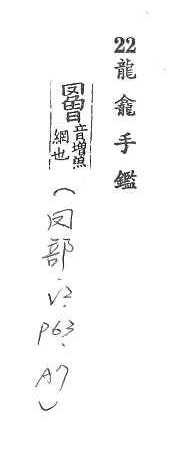 22 龍龕手鑑
音增魚
網也
(部.V2.P63.A7)